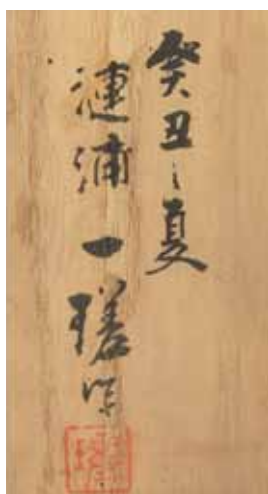 癸丑之夏
漣浦一瑳作